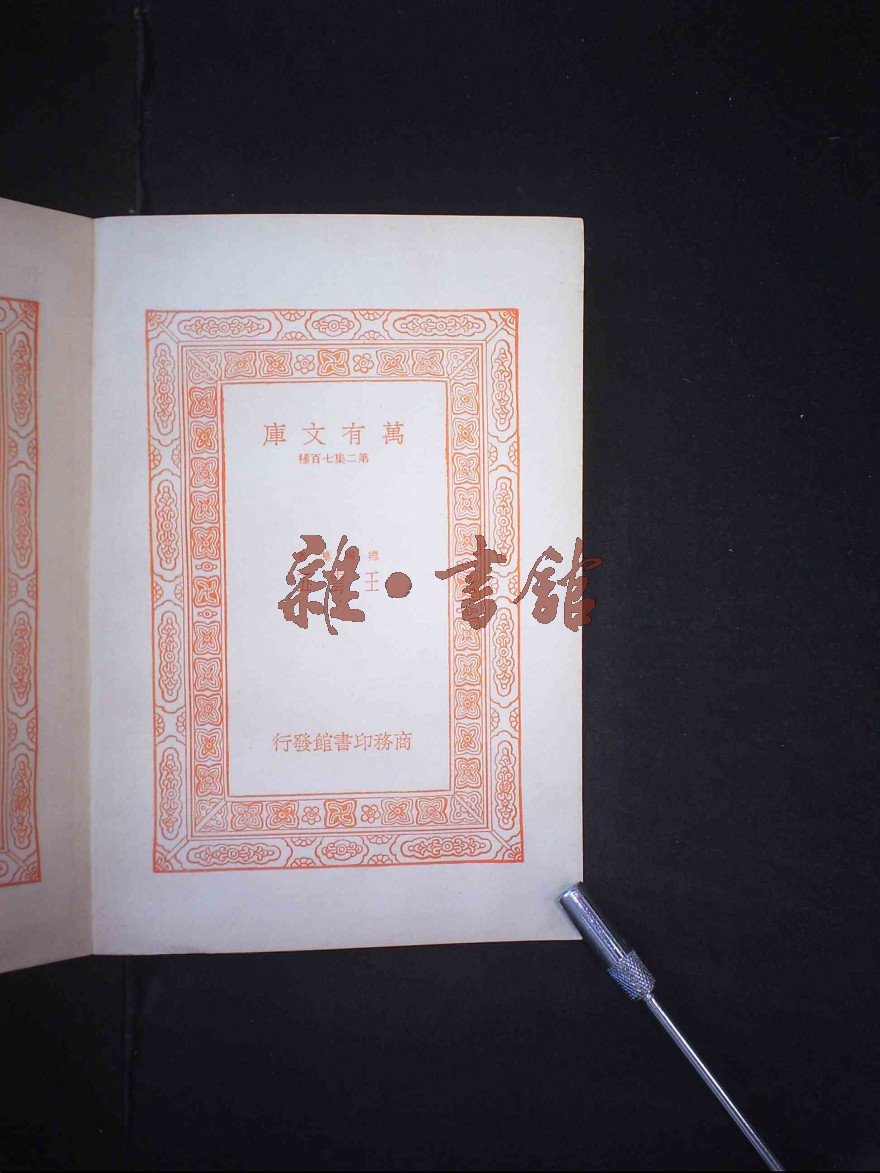 萬有文庫
第二集七百種
王
雜·書館
商務印書館發行